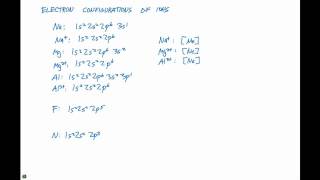 ELECTRON CONFIGURATIONS OF IONS
Na: 1s² 2s² 2p⁶ 3s¹
Na⁺: 1s² 2s² 2p⁶ Na⁺: [Ne]
Mg: 1s² 2s² 2p⁶ 3s²
Mg²⁺: 1s² 2s² 2p⁶ Mg²⁺: [Ne]
Al: 1s² 2s² 2p⁶ 3s² 3p¹ Al³⁺: [Ne]
Al³⁺: 1s² 2s² 2p⁶
F: 1s² 2s² 2p⁵
N: 1s² 2s² 2p³